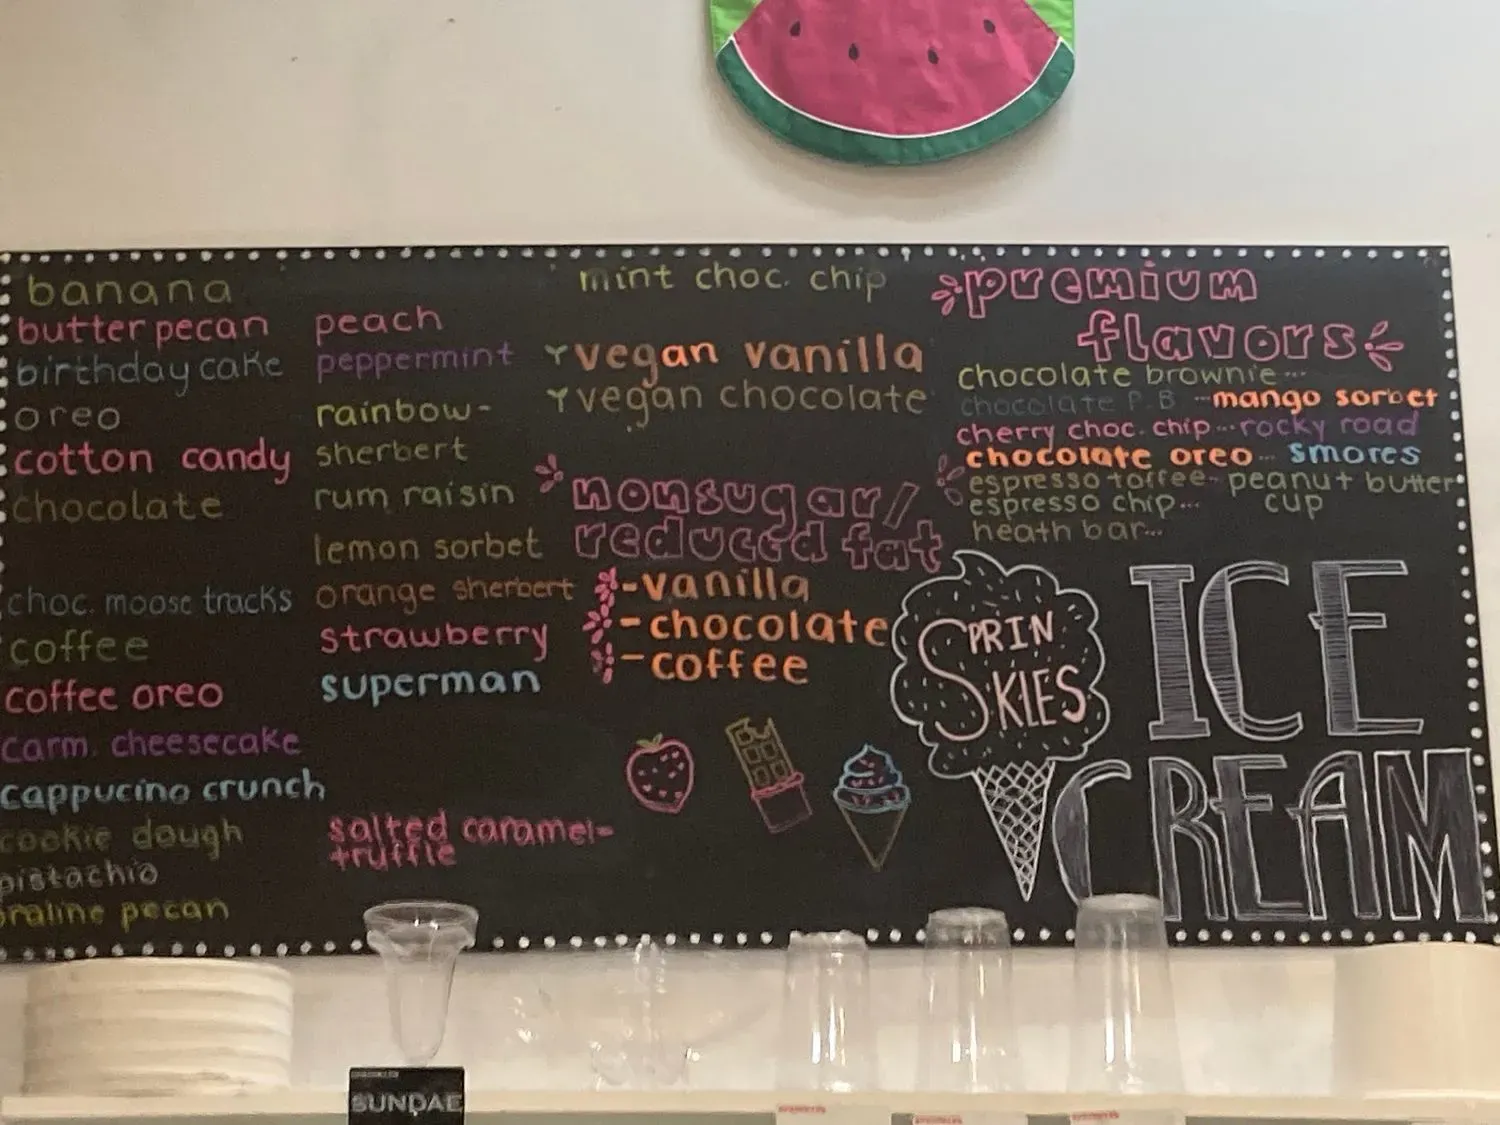 banana
butter pecan
birthday cake
oreo
cotton candy
chocolate
choc. moose tracks
coffee
coffee oreo
carm. cheesecake
cappucino crunch
cookie dough
pistachio
praline pecan
peach
peppermint
rainbow-
sherbert
rum raisin
lemon sorbet
orange sherbert
strawberry
superman
salted caramel-
truffle
mint choc. chip
vegan vanilla
vegan chocolate
nonsugar/
reduced fat
-vanilla
-chocolate
-coffee
premium
flavors
chocolate brownie...
chocolate P.B ...mango sorbet
cherry choc. chip...rocky road
chocolate oreo... smores
espresso toffee- peanut butter
espresso chip... cup
heath bar...
SPRIN
KLES
ICE
CREAM
SUNDAE